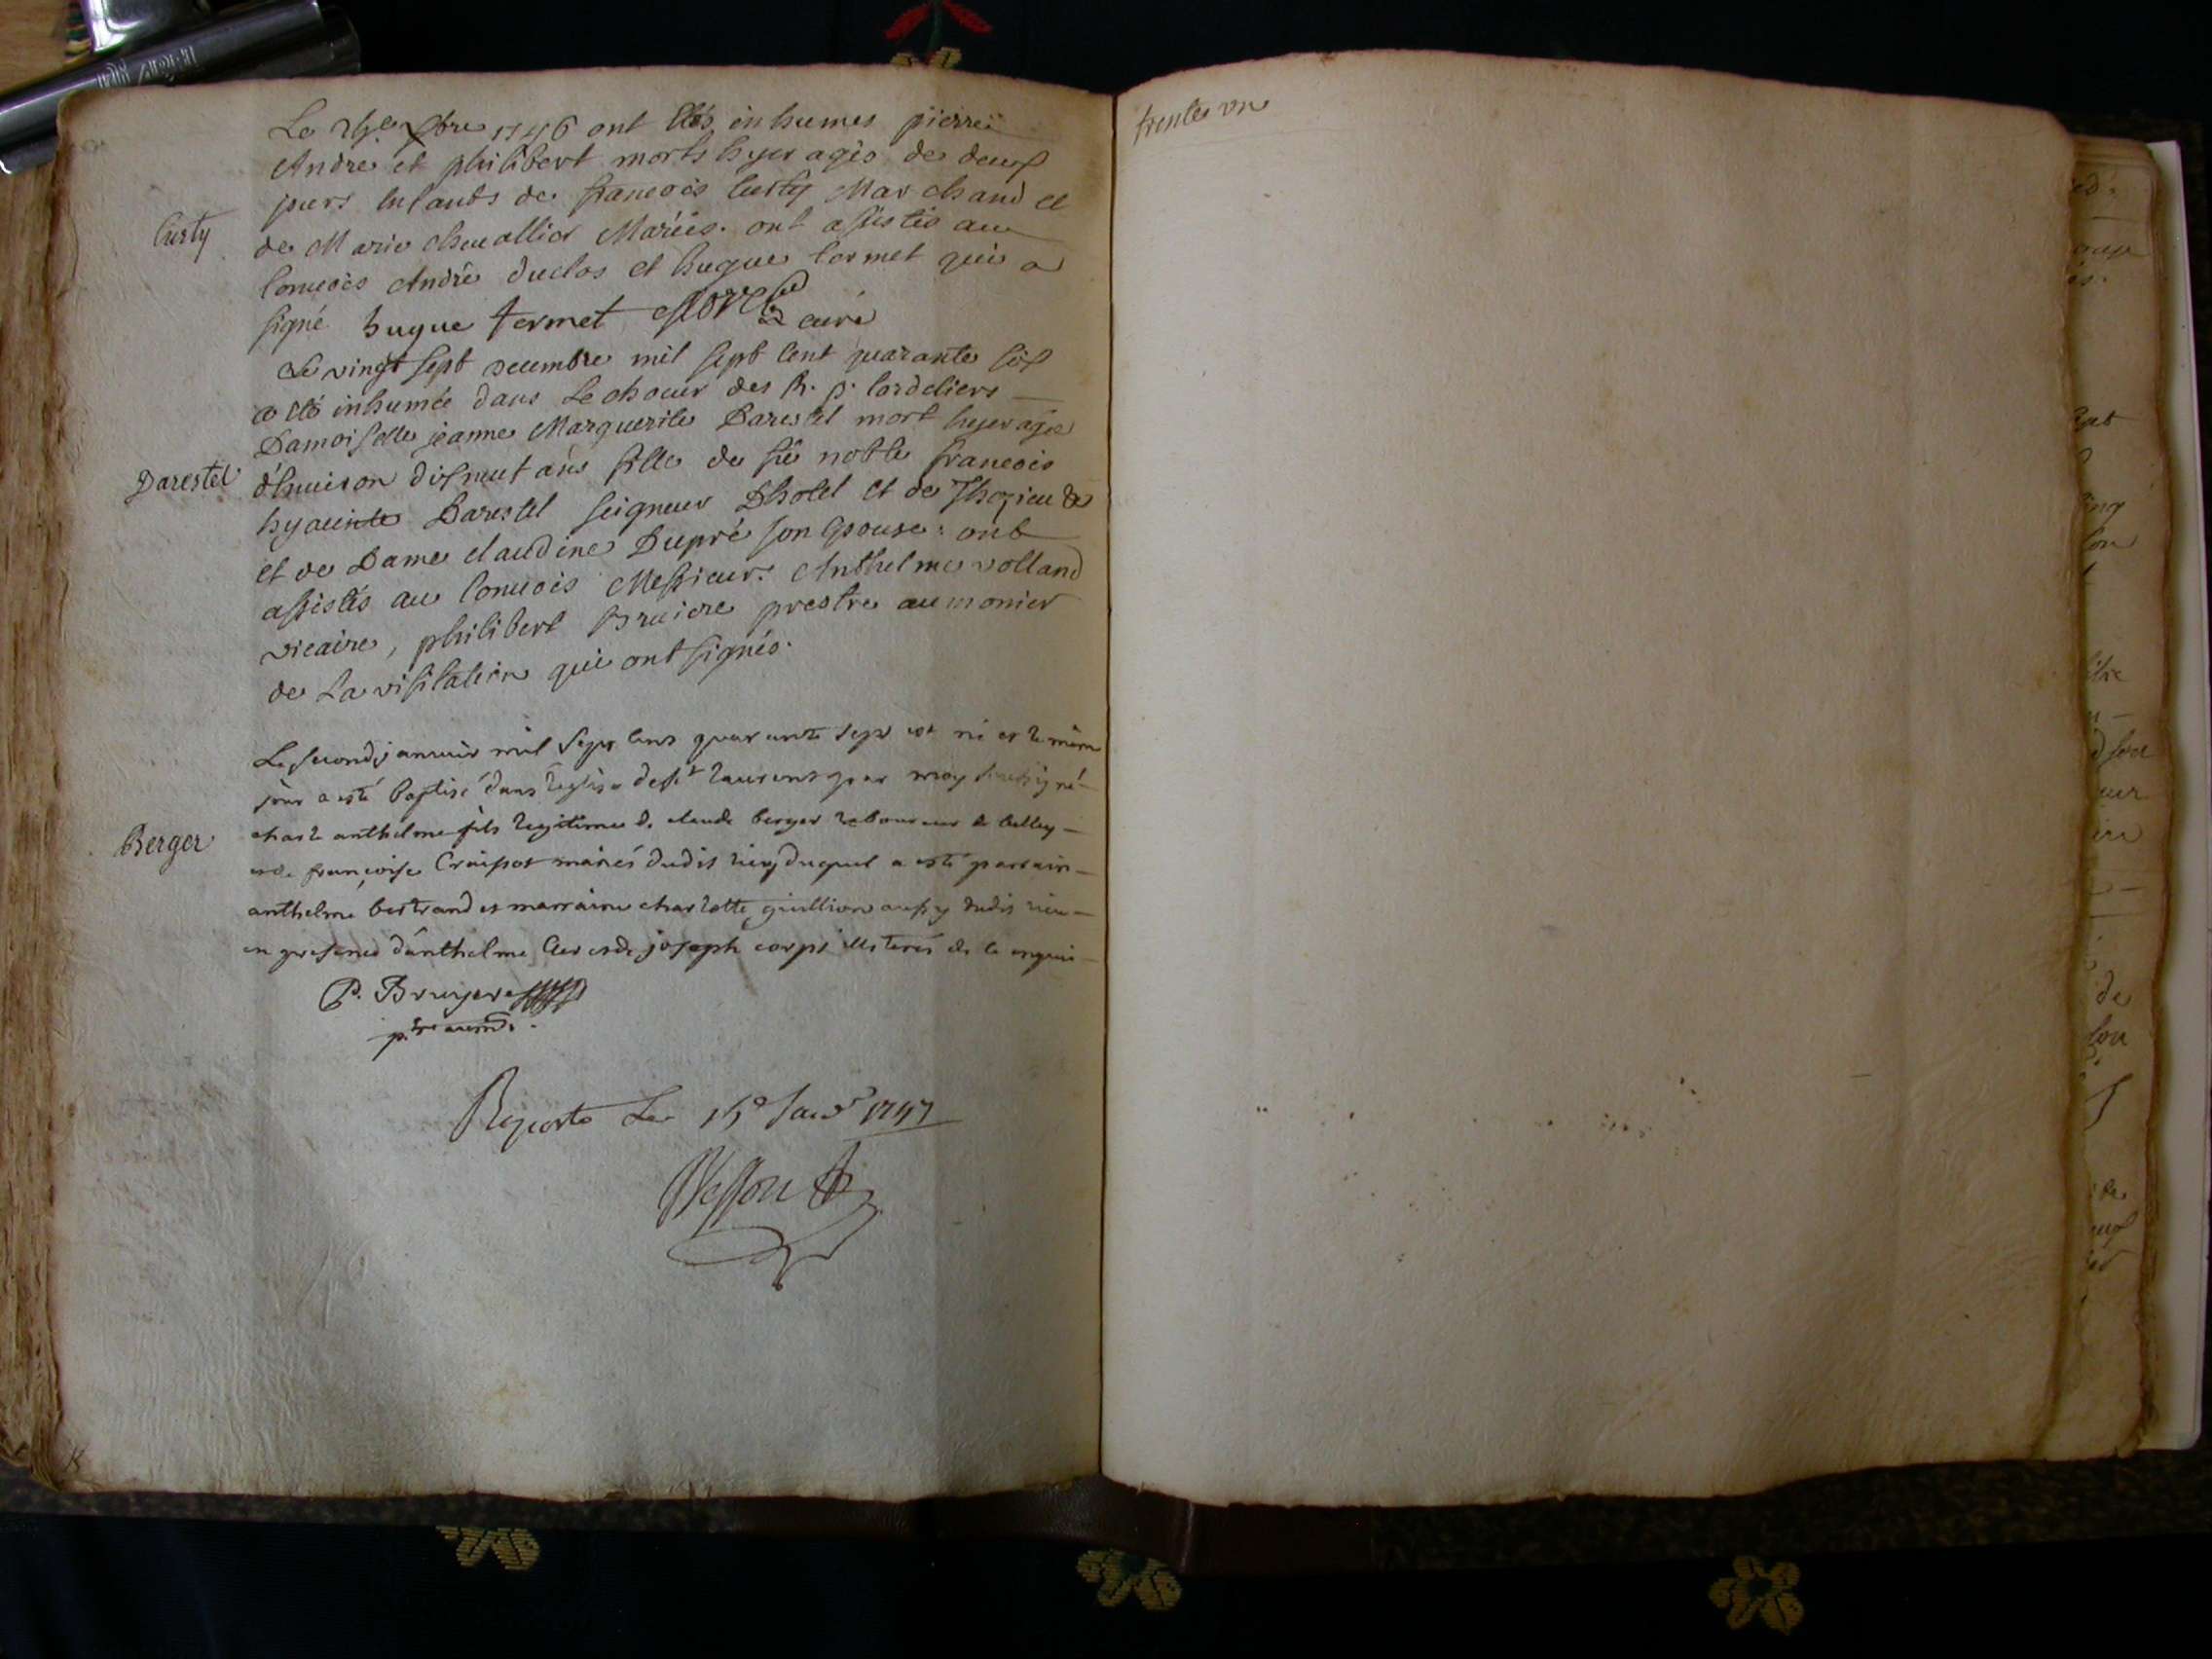 Le xbre 1746 ont étés inhumes pierre
André et philibert morts hyer agés de deux
jours enfants de francois Curty Marchand et
Curty
de Marie chevallier Mariés. ont assistés au
Convois André duclos et hugue termet qui a
signé hugue termet curé
Le vingt sept decembre mil sept Cent quarante six
a eté inhumée dans Le choeur des R. p. Cordeliers
Damoiselle jeanne Marguerite Darestel mort hyer agée
Darestel
d'environ disneuf ans fille de fû noble francois
hyacinte Darestel seigneur Dhotel et de
et de Dame claudine Dupré son Epouse: ont
assistés au Convois Messieurs Anthelme volland
vicaire, philibert Bruiere prestre aumonier
de La visitation qui ont signés.
Le second janvier mil sept cens quarante sept est né et le même
jour a esté baptisé dans l'eglise de st laurent par moy soussigné
charle anthelme fils legitime de claude berger laboureur de belley
Berger
et de françoise Craipot mariés dudit lieu duquel a esté parrain
anthelme bertrand et marraine charlotte guillion aussy dudit lieu
en presence d'anthelme et de joseph corps illiterés de ce enquis
P. Bruyere
p.tre aum.
Reporté Le 15e Janvr 1747
trente un